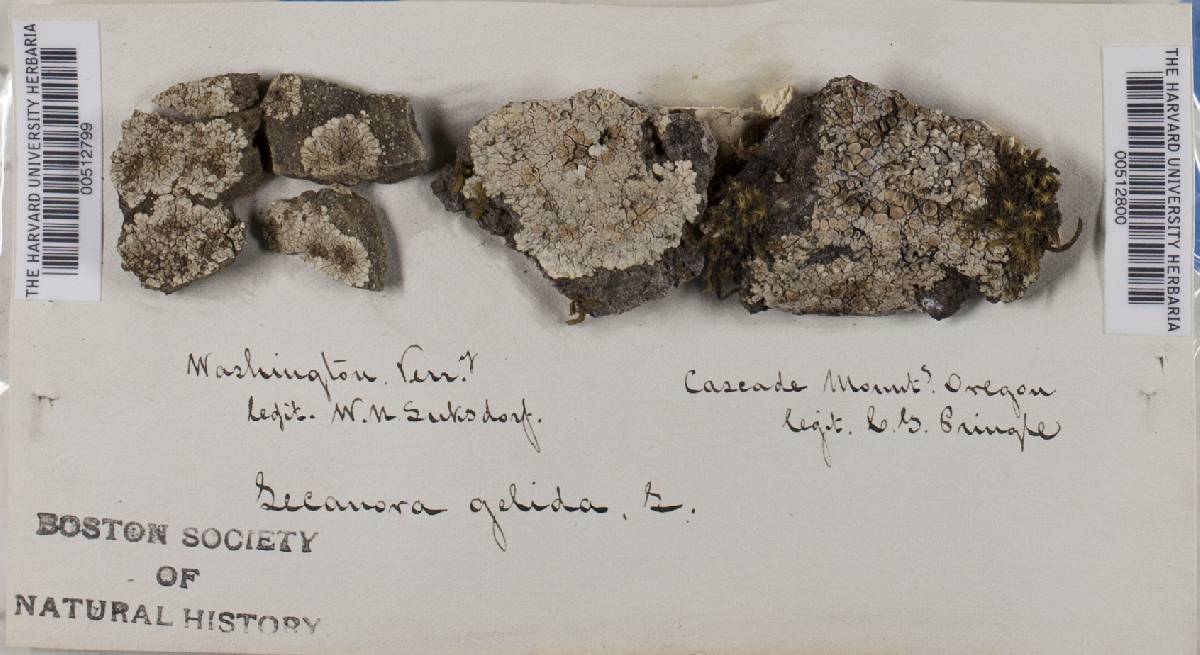 THE HARVARD UNIVERSITY HERBARIA
00512799
THE HARVARD UNIVERSITY HERBARIA
00512800
Washington Terr.y
legit. W. N. Suksdorf.
Cascade Mounts. Oregon
legit. C. G. Pringle
Lecanora gelida, L.
BOSTON SOCIETY
OF
NATURAL HISTORY